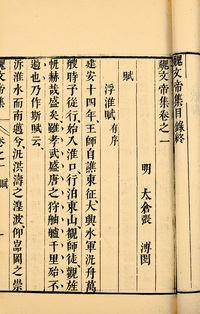 魏文帝集目錄終
魏文帝集卷之一
明　太倉張　溥閱
賦
浮淮賦有序
建安十四年王師自譙東征大興水軍汎舟萬
艘時予從行始入淮口行泊東山覩師徒觀旌
帆赫哉盛矣雖孝武盛唐之狩舳艫千里殆不
過也乃作斯賦云
泝淮水而南邁兮汎洪濤之湟波仰嵒岡之崇
魏文帝集　卷之一　賦　一